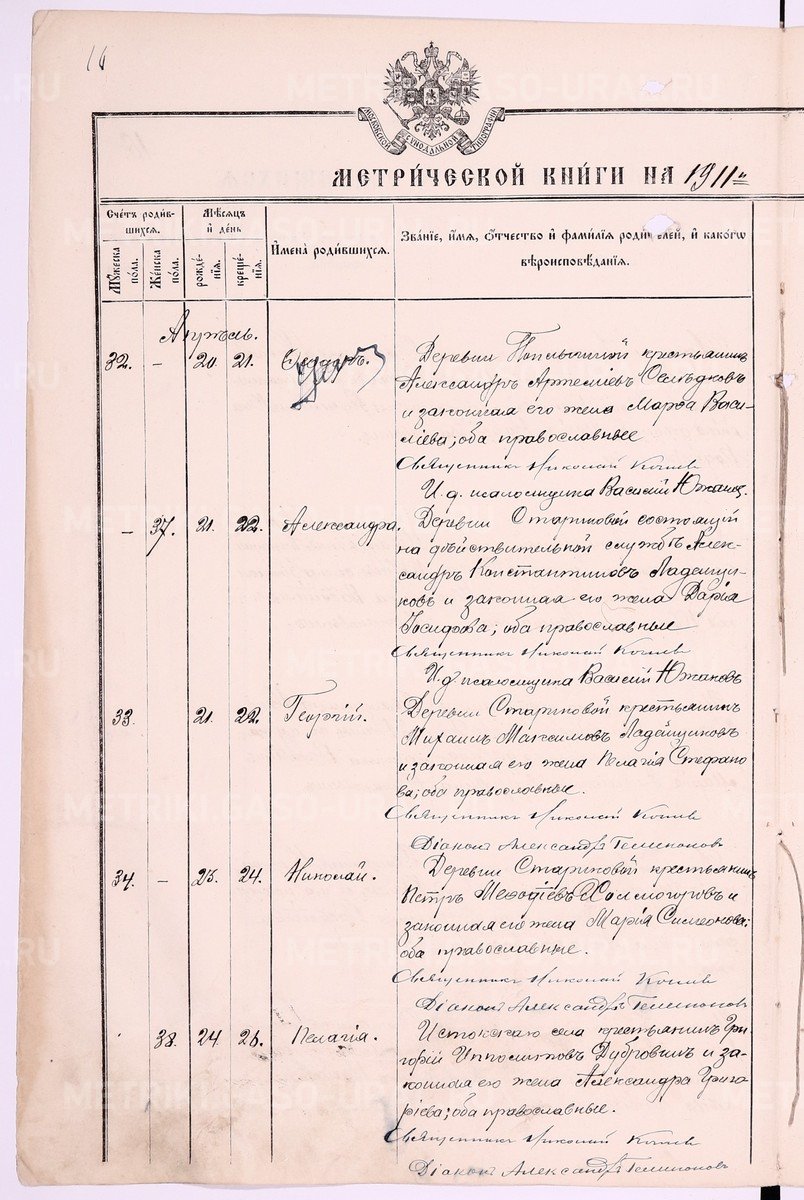 16
МОСКОВСКОЙ СѴНОДАЛЬНОЙ ТИПОГРАФІИ
МЕТРИ́ЧЕСКОЙ КНИ́ГИ НА 1911 г.
Сче́тъ роди́в-
шихся.
Мѣ́сяцъ
и̂ де́нь
Имена̀ роди́вшихся.
Зва́ніе, и́мя, ѻ́тчество и̂ фами́лія роди́телей, и̂ како́гѡ
вѣроисповѣ́данія.
Мꙋ́жеска по́ла.
Же́нска по́ла.
рожде́-нія.
креще́-нія.
Апрѣль.
32. – 20. 21.
Деревни крестьянинъ
Александръ Артеміевъ Селѣдковъ
и законная его жена Марѳа Васи-
ліева; оба православные
Священникъ Николай
И. д. псаломщика Василій Южаковъ.
– 37. 21. 22. Александра.
Деревни Стариковой состоящій
на дѣйствительной службѣ Алек-
сандръ Константиновъ Ладейщи-
ковъ и законная его жена Дарія
Іосифова; оба православные
Священникъ Николай
И. д. псаломщика Василій Южаковъ
33. 21. 22. Георгій.
Деревни Стариковой крестьянинъ
Михаилъ Максимовъ Ладейщиковъ
и законная его жена Пелагія Стефано-
ва; оба православные.
Священникъ Николай
Діаконъ Александръ
34. – 23. 24. Николай.
Деревни Стариковой крестьянинъ
Петръ Меѳодіевъ Холмогоровъ и
законная его жена Марія Симеонова;
оба православные.
Священникъ Николай
Діаконъ Александръ
38. 24 25. Пелагія.
Истокскаго села крестьянинъ Гри-
горій Ипполитовъ Дубровинъ и за-
конная его жена Александра Григо-
ріева; оба православные.
Священникъ Николай
Діаконъ Александръ